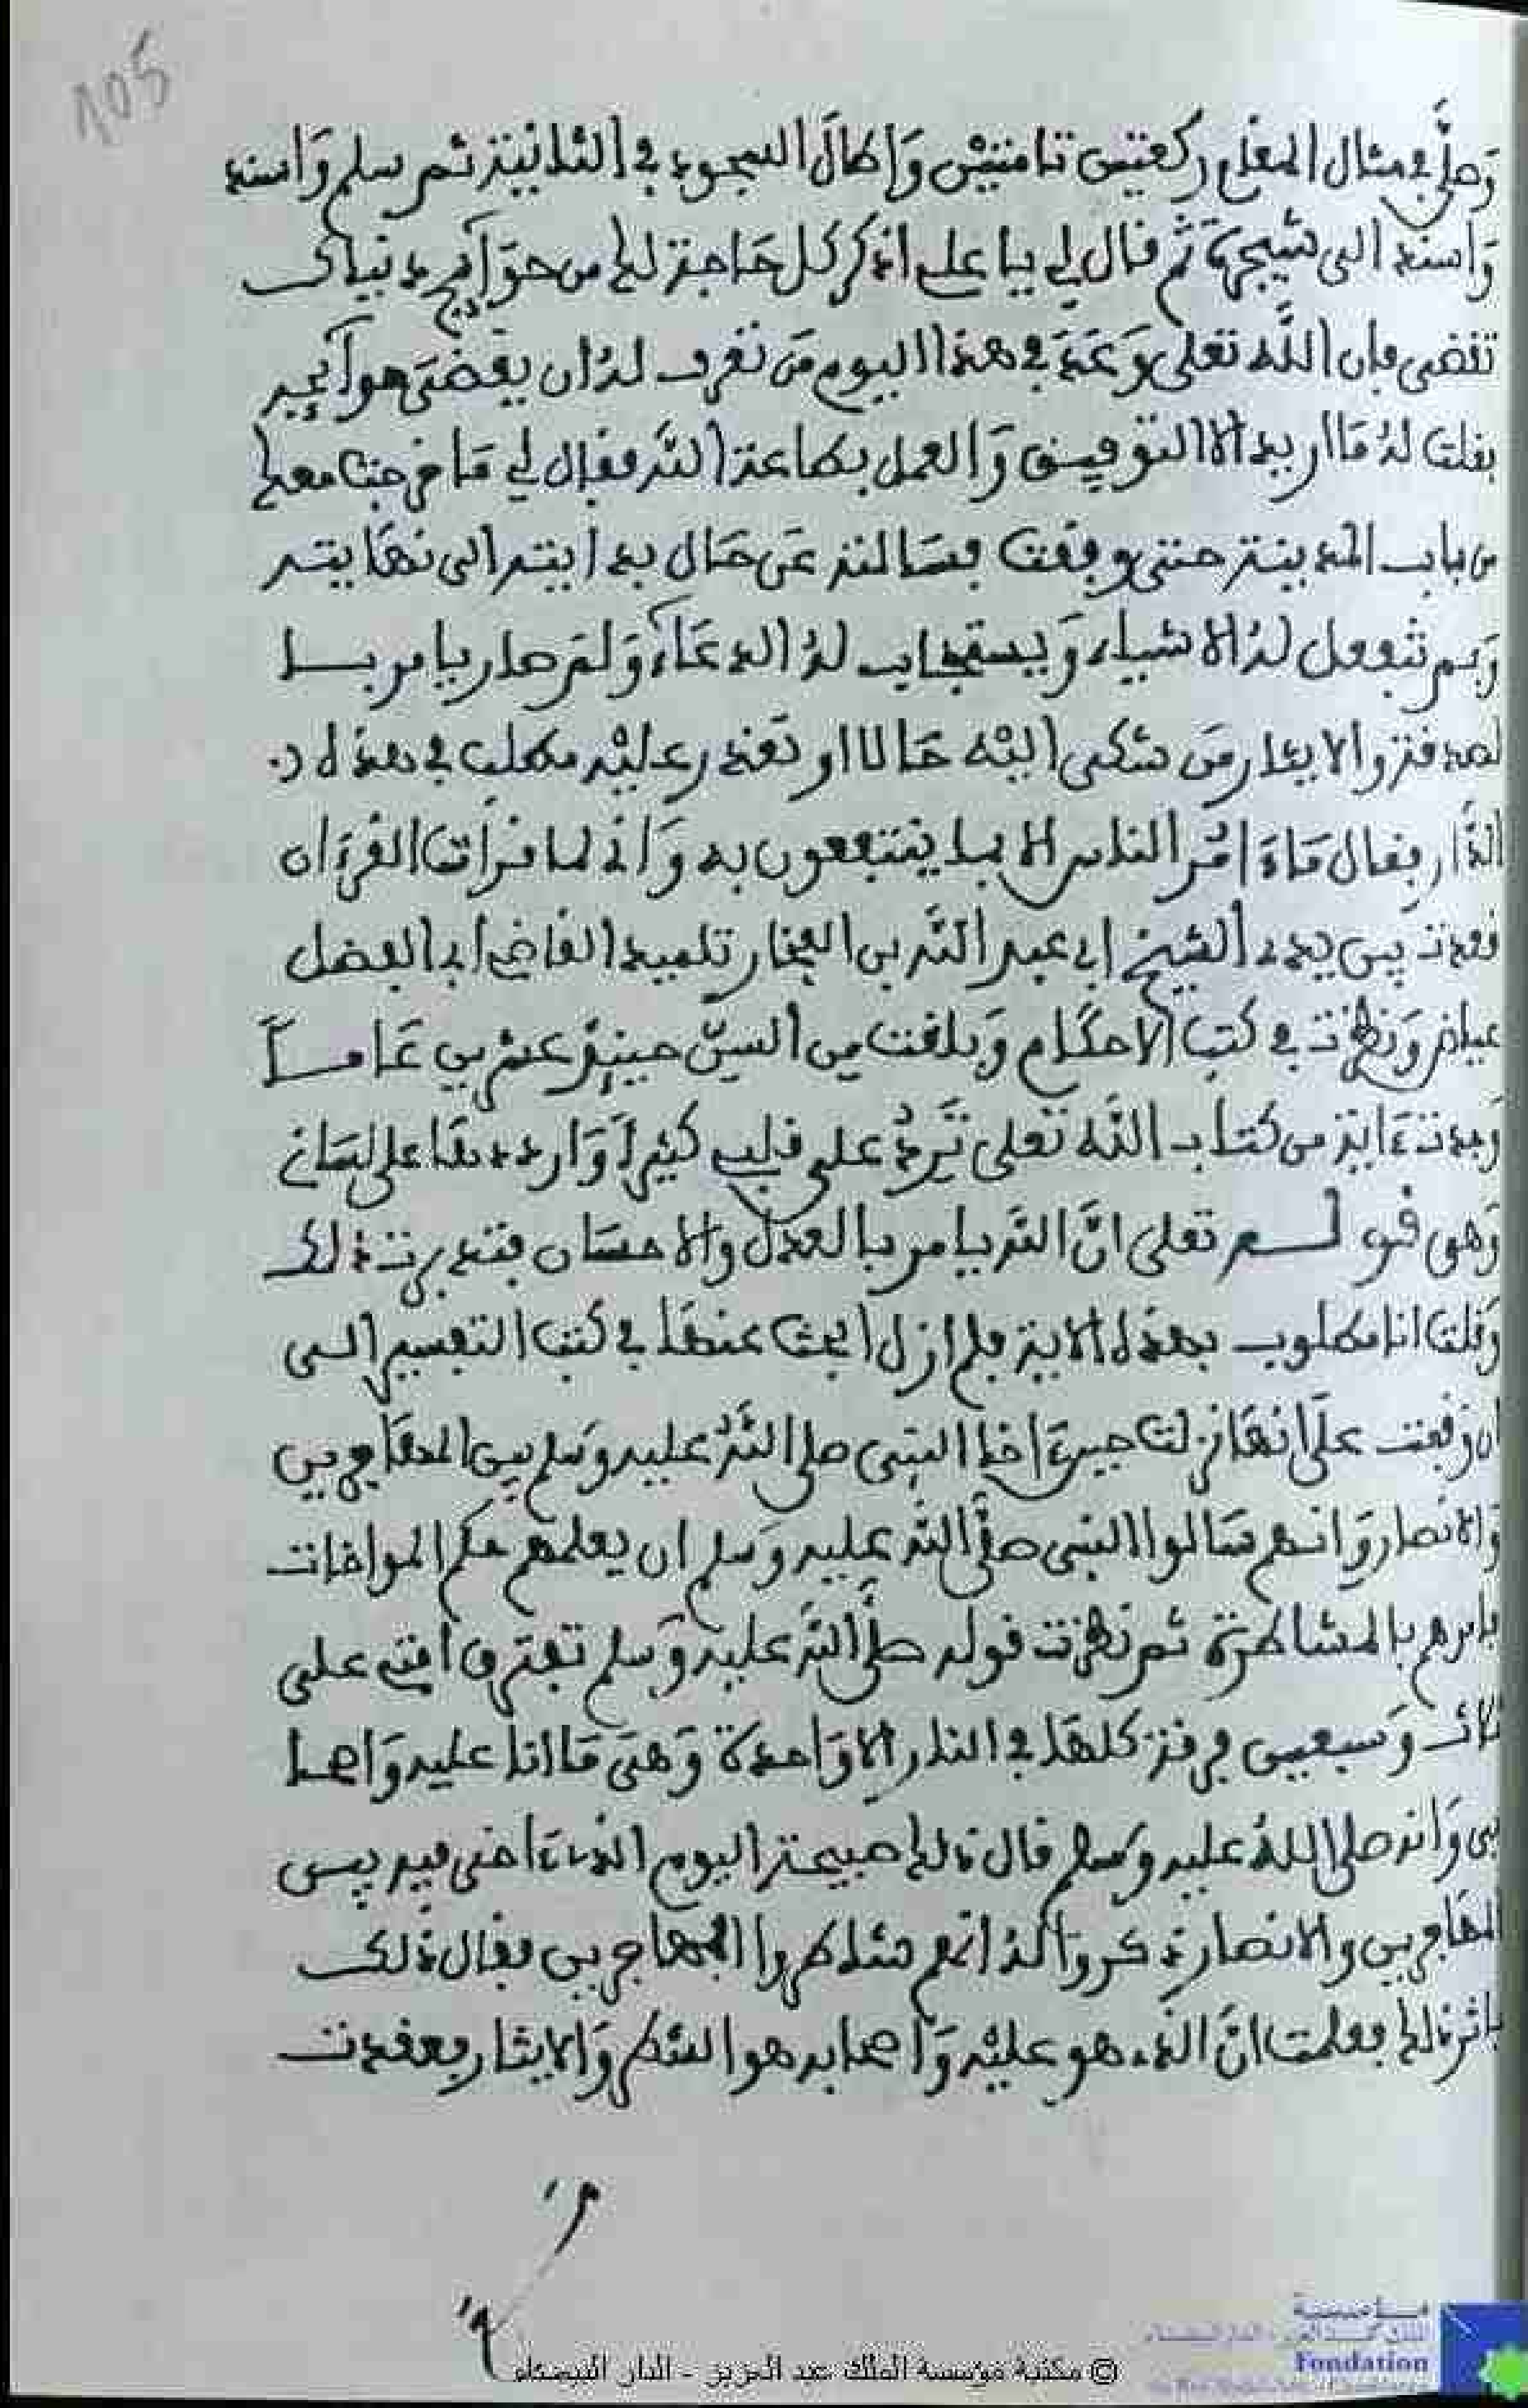 105
وَصلَّى في مثال المفلع ركعتين تامتين وَاطال السجود في الثانية ثم سلم وَاسند
وَاسند الى شيجرة ثم فال لي يا علي اذكر كل حَاجة لك من حوَآيج دنياك
تنفضى فإن اللَّه تعلى وَعَدَ في هذا اليوم مَن تعرف لهُ ان يفضَى حوآيجه
ففلت لهُ مَا اريد الا التوفيق وَالعمل بطاعة اللَّه ففال لي مَا خرجت معك
من باب المدينة حتى وفِّفت فسَالته عَن حَال بدايته الى نهَايته
وَبم تنفعل لهُ الاشياء وَيستجاب لهُ الدعَاءُ وَلمَ صار يامر بـا
لصدفة والايثار مَن شكى اليْه حَالا او تعذر عليْه مطلب في هذه د.
الدَّار ففال مَا ءامُر الناس الا بما ينتفعون به وَانى لما فرات الفرءان
فعدت بين يدي الشيخ ابي عبد اللَّه بن الفخار تلميذ الفاضي ابي الفضل
عياض وَنظرت في كتب الاحكَام وَبلغت من السنّ حينئذ عشرين عَامـاً
وَجدت ءاية من كتاب اللَّه تعلى تَردُ على فلبي كثيراً وَارددهَا على لسَاني
وَهى فولـه تعلى انَّ اللَّه يامر بالعدل والاحسَان فتدبرت ذلك
وَفلت انا مطلوب بهذه الاية فلم ازل ابحث عنهَا في كتب التفسير الى
ان وَفعت علَى انهَا نزلت حين ءاخا النبى صلى اللَّهُ عليه وسَلم بين المهَاجرين
وَالانصار وَانهم سَالوا النبى صلَّى اللَّه عليه وَسلم ان يعلمهم حكم المواخات
فامرهم بالمشاطرة ثم نظرت فوله صلَّى اللَّه عليه وَسلم تفترق امتي على
ثلاث وَسبعين فرفة كلهَا في النار الا وَاحدة وَهىَ مَا انا عليه وَاصحا
بى وَانه صلى اللهُ عليه وسلم فال ذلك صبيحة اليوم الذي ءاخى فيه بين
المهَاجرين والانصار ذكروا لهُ انهم شاطروا المهاجرين ففال ذلك
باثر ذلك فعلمت انَّ الذي هو عليْه وَاصحابه هو الشطر وَالايثار فعفدت
© مكتبة مؤسسة الملك عبد العزيز - الدار البيضاء
مؤسسة
الملك عبد العزيز - الدار البيضاء
Fondation